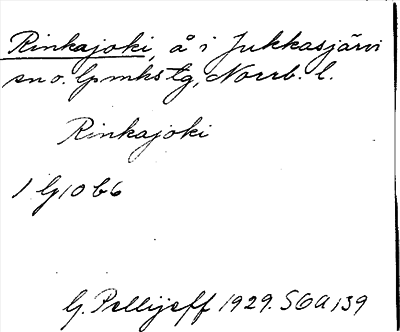 Rinkajoki, å i Jukkasjärvi
sn o. lpmkstg, Norrb. l.
Rinkajoki
1 G10 b6
G. Pellijeff 1929. SOA 139